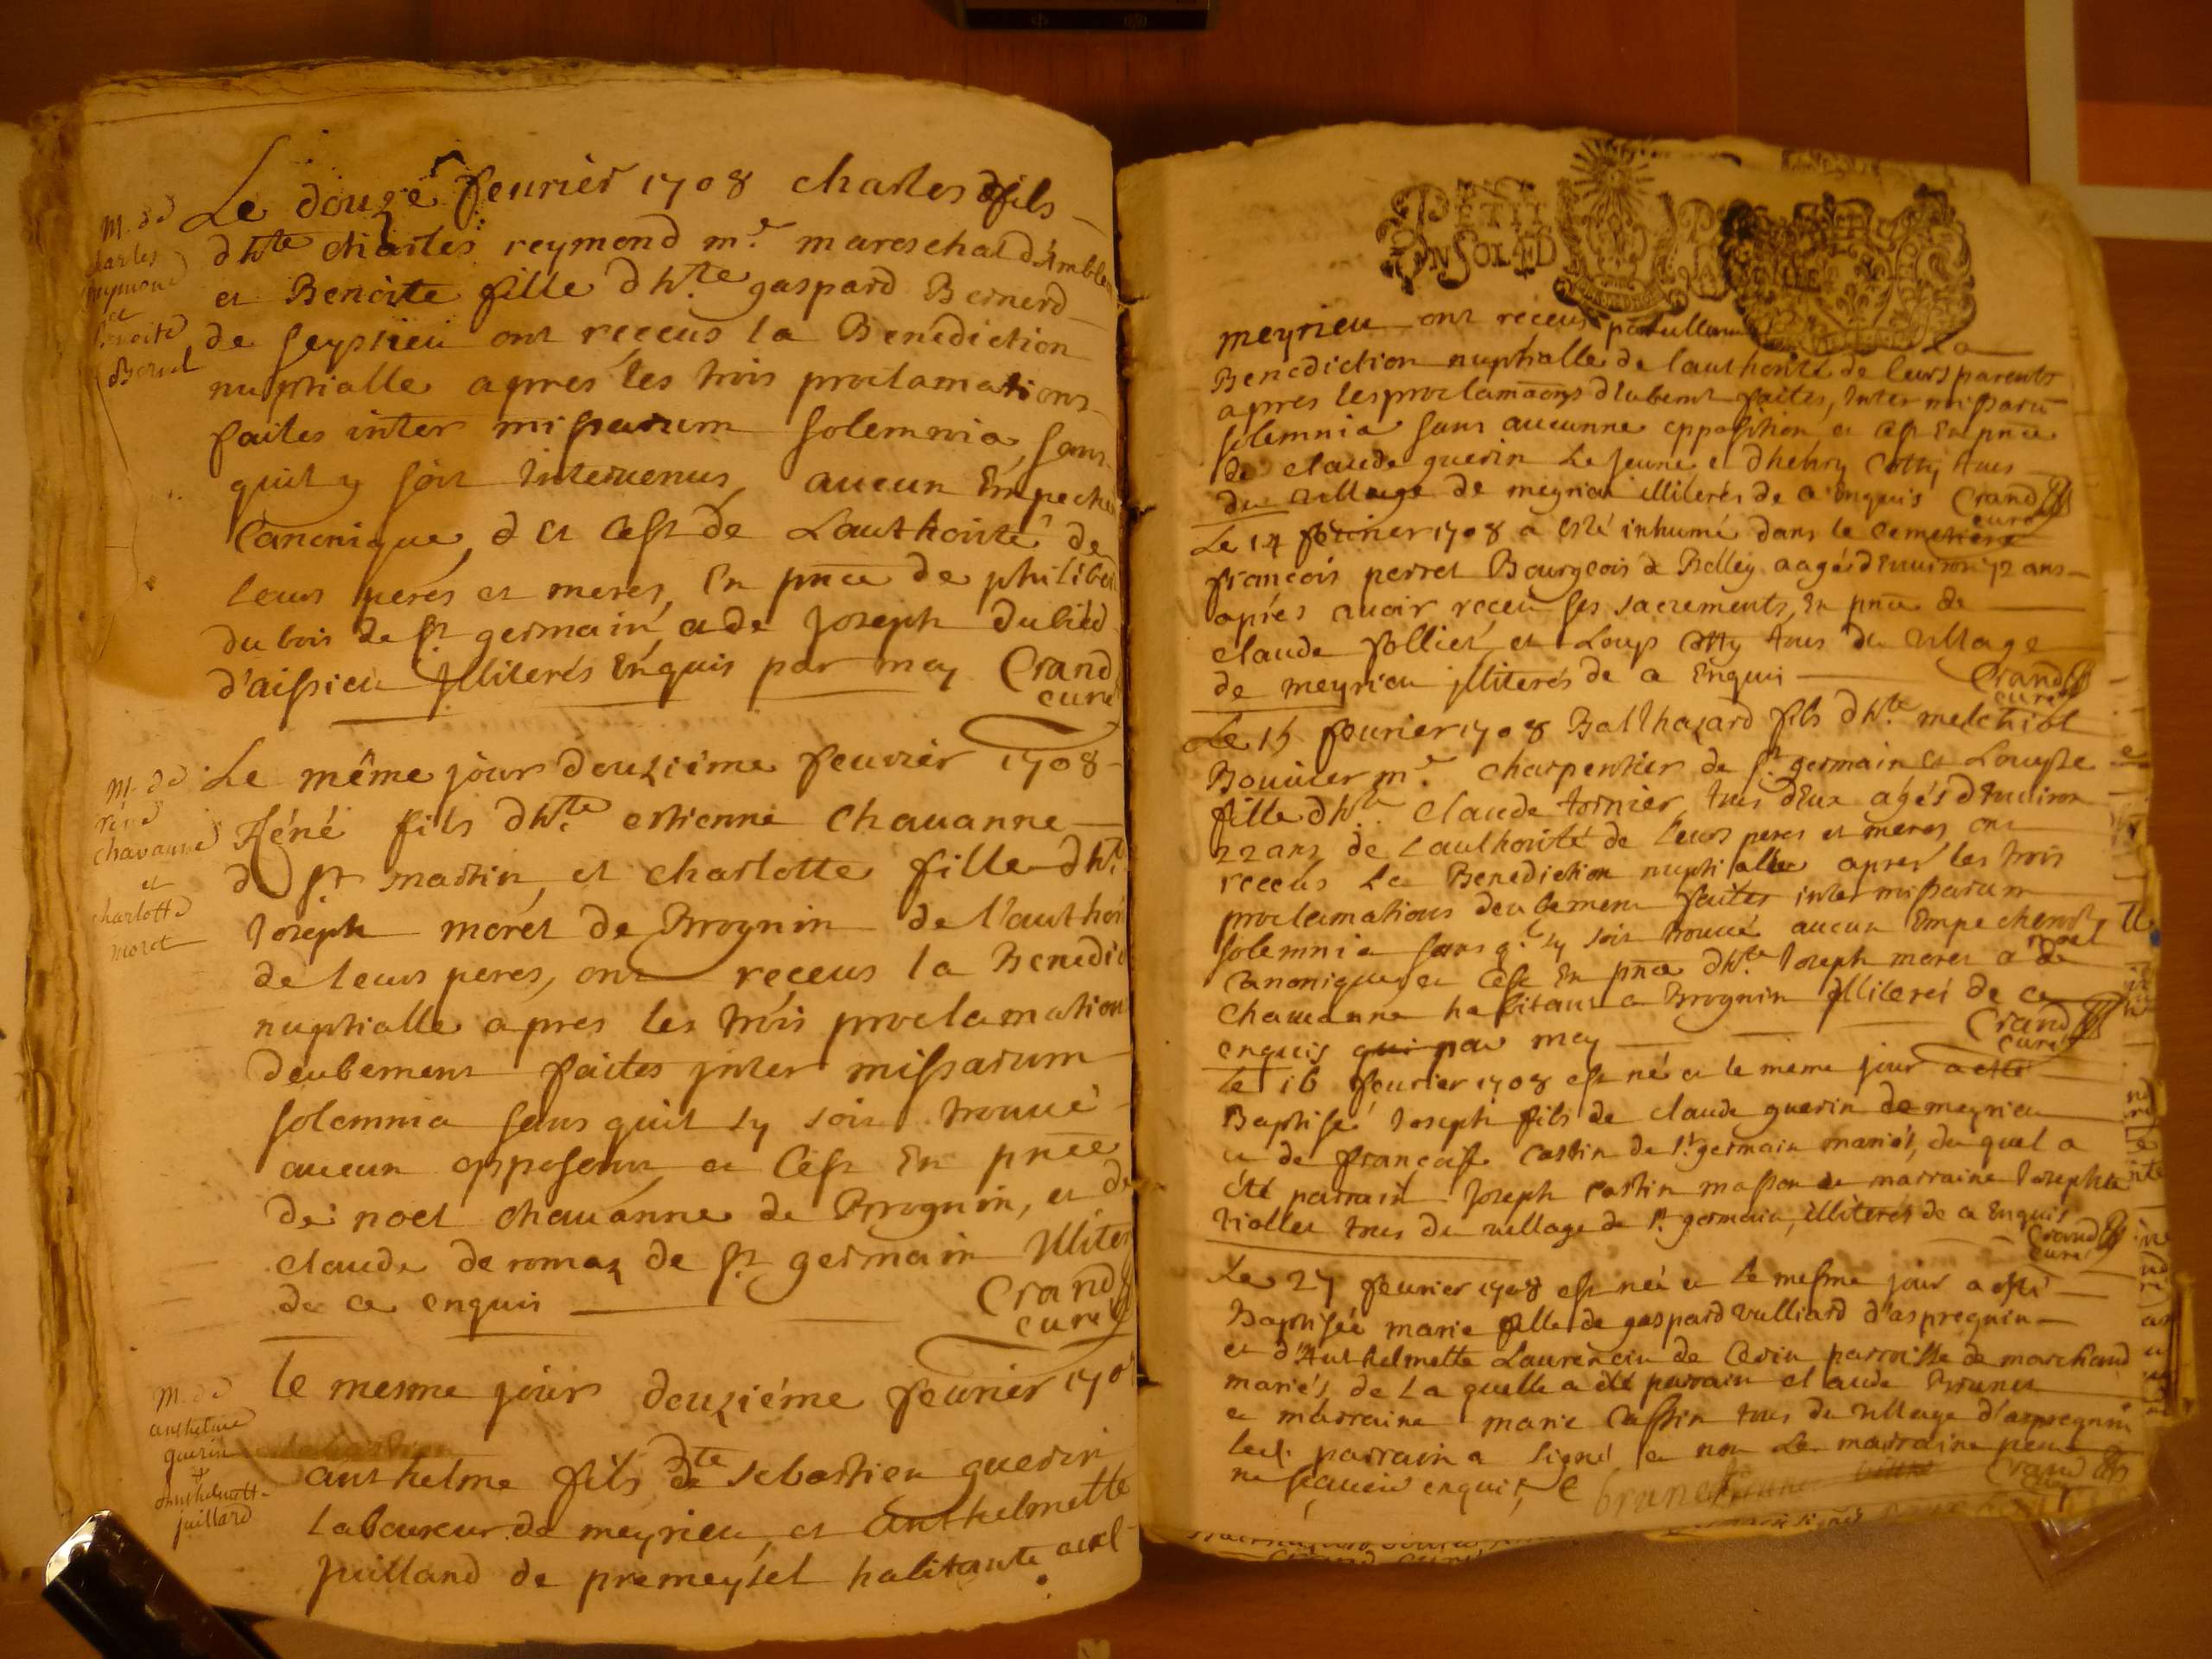 M. de
charles
reymond
et
Benoite
Bernerd
Le douze fevrier 1708 charles fils
dhte charles reymond me mareschal d'Amble
et Benoite fille dhte gaspard Bernerd
de seyssieu ont receus la Benediction
nuptialle apres les trois proclamations
faites inter missarum solemnia, sans
quil y soit intervenus aucun Empeche
Canonique, et cest de Lauthorité de
leurs peres et meres, En pnce de philibe
du bois de st germain, a de Joseph dubied
d'aissieu Jlliterés Enquis par moy Crand
curé
M. de
réné
chavanne
et
charlotte
moret
Le même jour douzieme fevrier 1708
Réné fils dhte estienne chavanne
de st martin, et charlotte fille dhte
Joseph moret de Brognin de l'autho
de leurs peres, ont receus la Benedic
nuptialle apres les trois proclamation
deubement faites jnter missarum
solemnia sans quil sy soit trouvé
aucun opposant et cest En pnce
de noel chavanne de Brognin, et de
claude deromaz de st germain Jlliter
de ce enquis Crand
curé
M. de
anthelme
guerin
et
anthelmette
juilland
le mesme jour douziéme fevrier 170
anthelme fils dte sebastien guerin
laboureur de meyrieu, et anthelmette
Juilland de premeysel habitante aud
PETIT PA
EN SOL ED
meyrieu ont receus la
Benediction nuptialle de lauthorité de leurs parents
apres les proclamaons deubemt faites, Inter missaru
solemnia sans aucunne opposition, et cest En pnce
de claude guerin Le Jeune et dhenry Cotty tous
du village de meyrieu illiterés de ce Enquis Crand
curé
Le 14 fevrier 1708 a esté inhumé dans le cemetiere
francois perret Bourgeois de Belley aagé d'Environ 72 ans
aprés avoir receu ses sacrements, En pnce de
claude follier et Loup Cotty tous du village
de meyrieu jlliterés de ce Enquis Crand
curé
Le 15 fevrier 1708 Balthazard fils dhte melchiol
Bouvier me charpentier de st germain et Louyse
fille dhte Claude tornier, tous deux agés d'Environ
22 ans de l'authorité de leurs peres et meres ont
receus La Benediction nuptialle aprés les trois
proclamations deubement faites inter missarum
solemnia sans ql sy soit trouvé aucun Empechemt
Canonique, et cest En pnce dhte Joseph moret a de noel
chavanne habitant a Brognin jlliterés de ce
enquis qui par moy Crand
curé
Le 16 fevrier 1708 est né et le meme jour a esté
Baptisé Joseph fils de claude guerin de meyrieu
et de françoise Castin de st germain mariés, du quel a
été parrain Joseph Castin masson et marraine Josephte
Viollet tous du village de st germain, illiterés de ce Enquis
Crand
curé
Le 27 fevrier 1708 est née et le mesme jour a esté
Baptisée marie fille de gaspard vulliard d'aspregnin
et d'Anthelmette Laurencin de Cerin parroisse de marchand
mariés, de La quelle a été parrain claude Brunet
et marraine marie Cassin tous du village d'arpregnin
led. parrain a signé et non La marraine pour
ne sçavoir enquis C brunet Crand